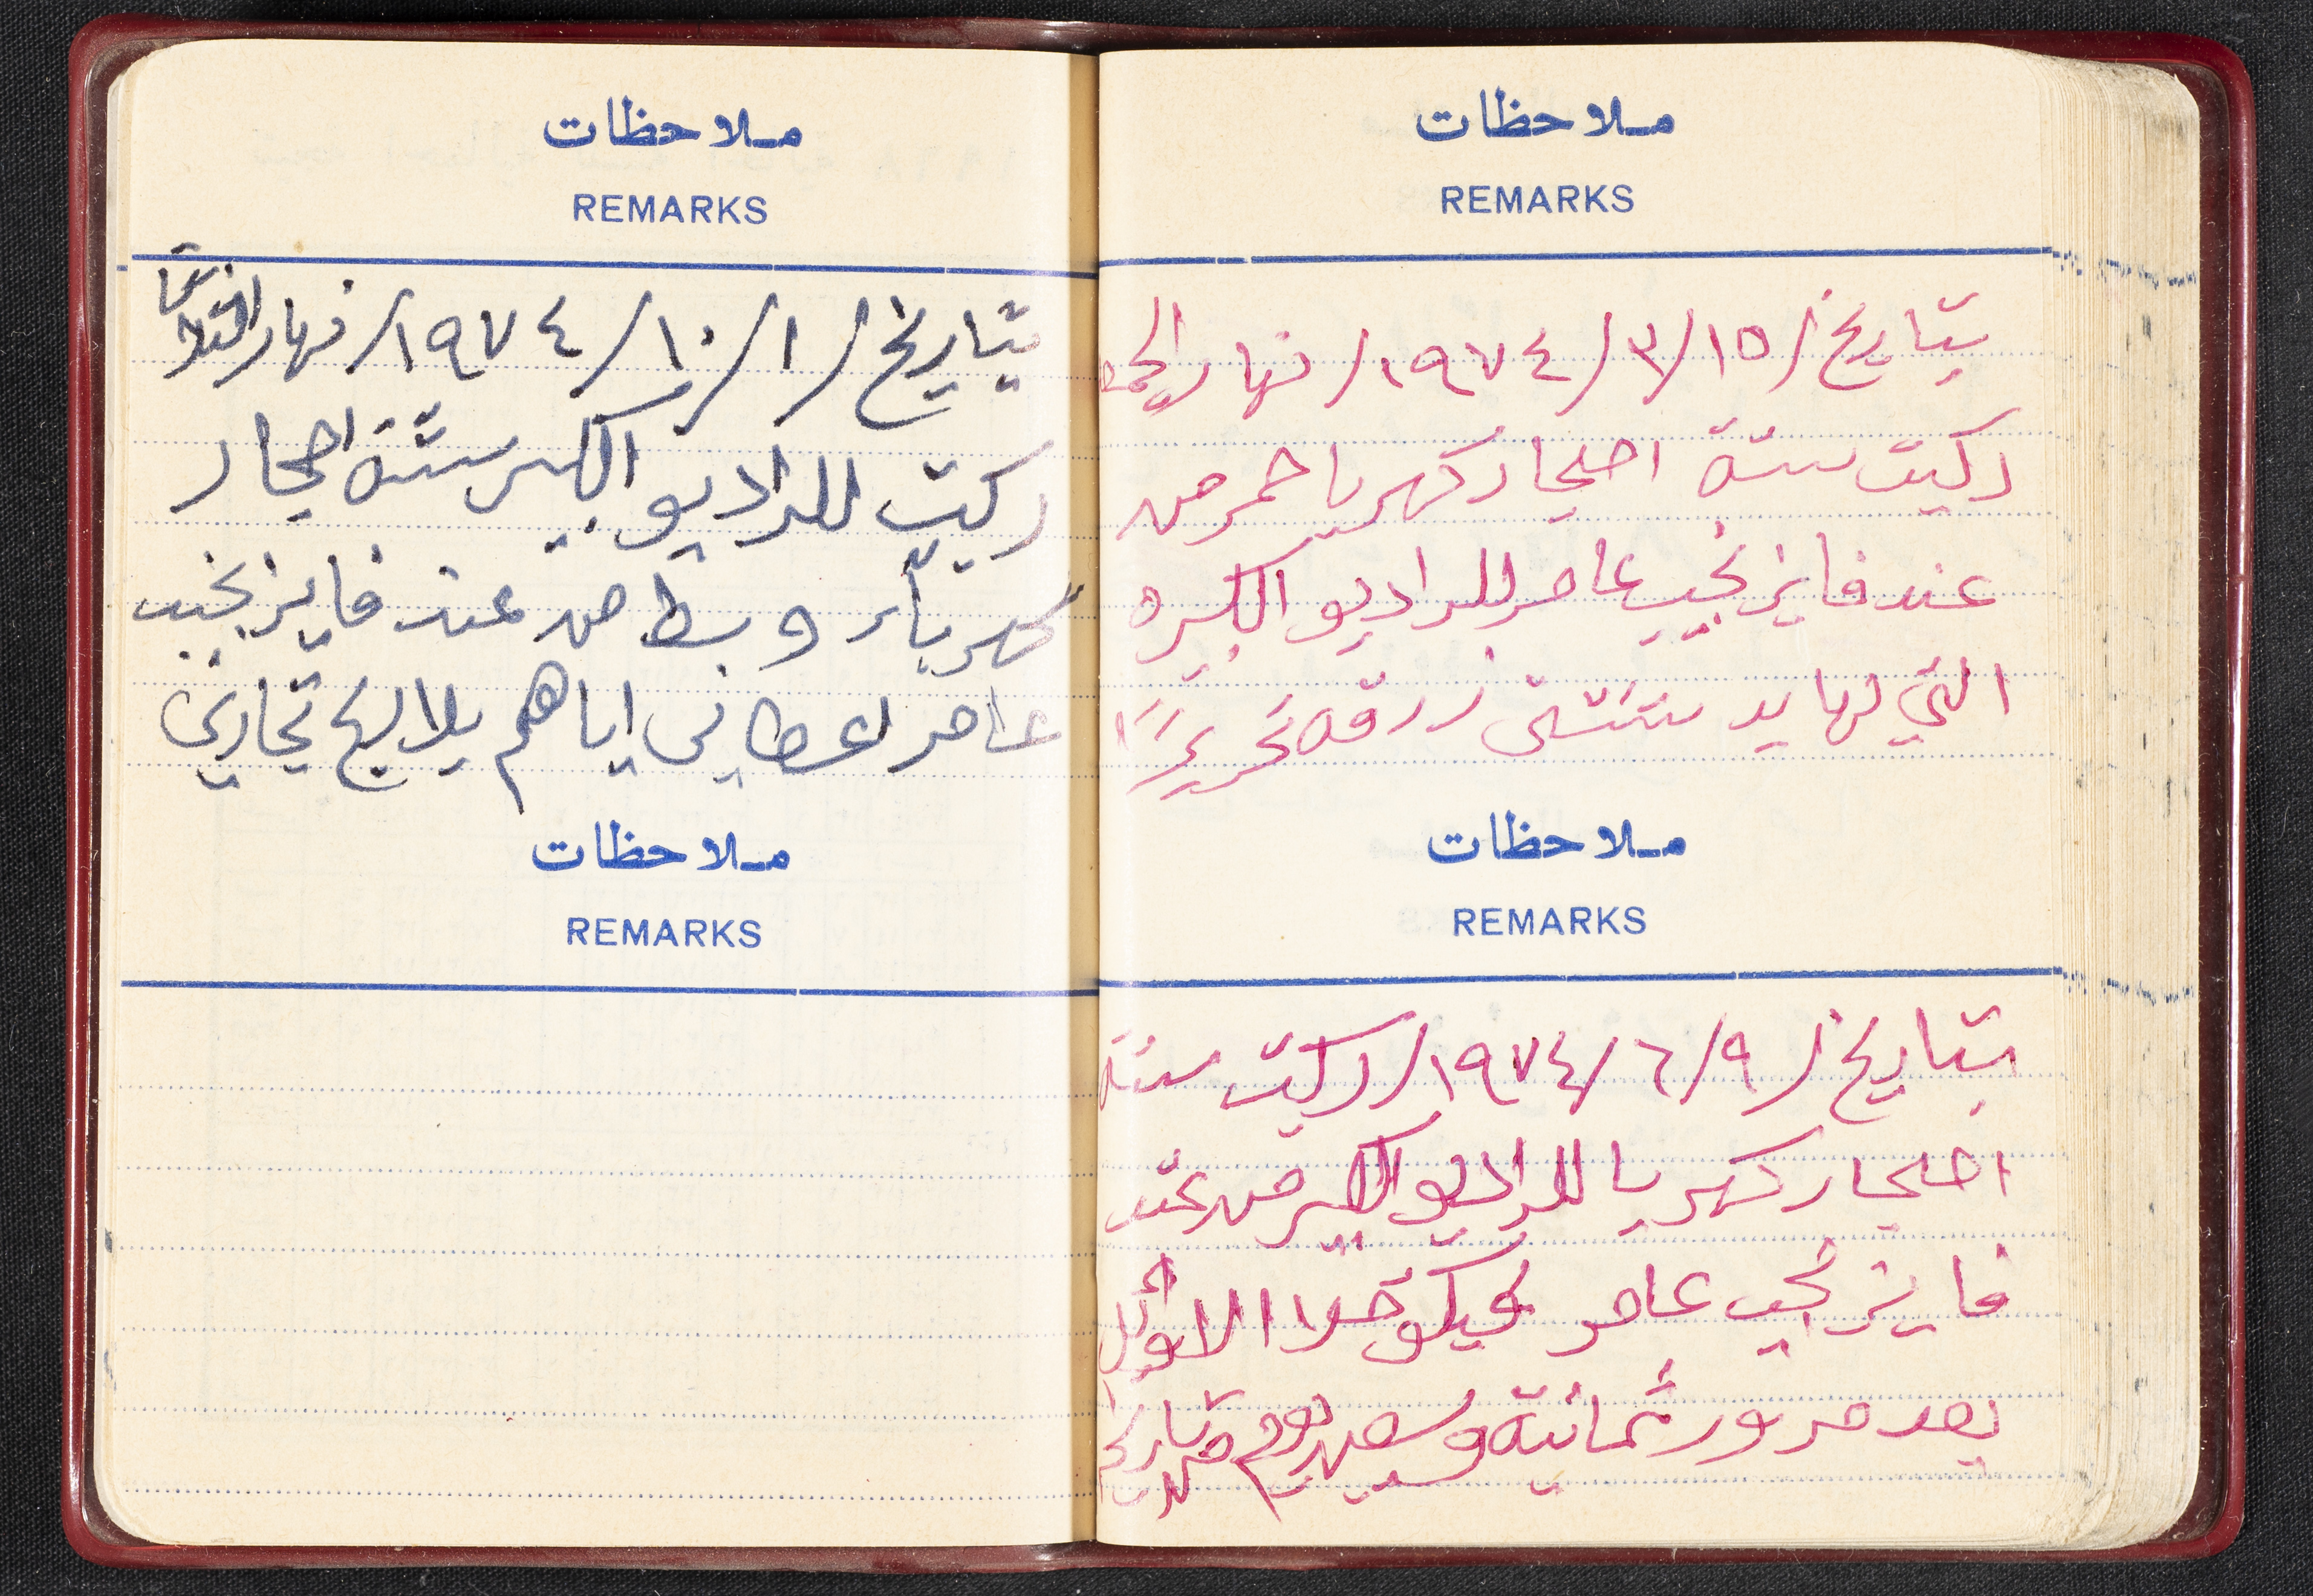 ملاحظات
REMARKS
بتاريخ / ١٥ / ٣ / ١٩٧٤ / نهار الجمعة
ركبت ستة احجار كهربا حمر من
عند فايز نجيب عامر للراديو الكبيره
التي لها يد ستتي زرقه تحريرًا
ملاحظات
REMARKS
بتاريخ / ٩ / ٦ / ١٩٧٤ / ركبت ستة
احجار كهربا للراديو الكبير من عند
فايز نجيب عامر
بعد مرور ثمانية وسبعين يوم من تاريخ
ملاحظات
REMARKS
بتاريخ / ١ / ١٠ / ١٩٧٤ / نهار الثلاثا
ركبت للراديو الكبير ستة احجار
كهرباء وسط من عند فايز نجيب
عامر اعطاني اياهم بلا ربح تجاري
ملاحظات
REMARKS